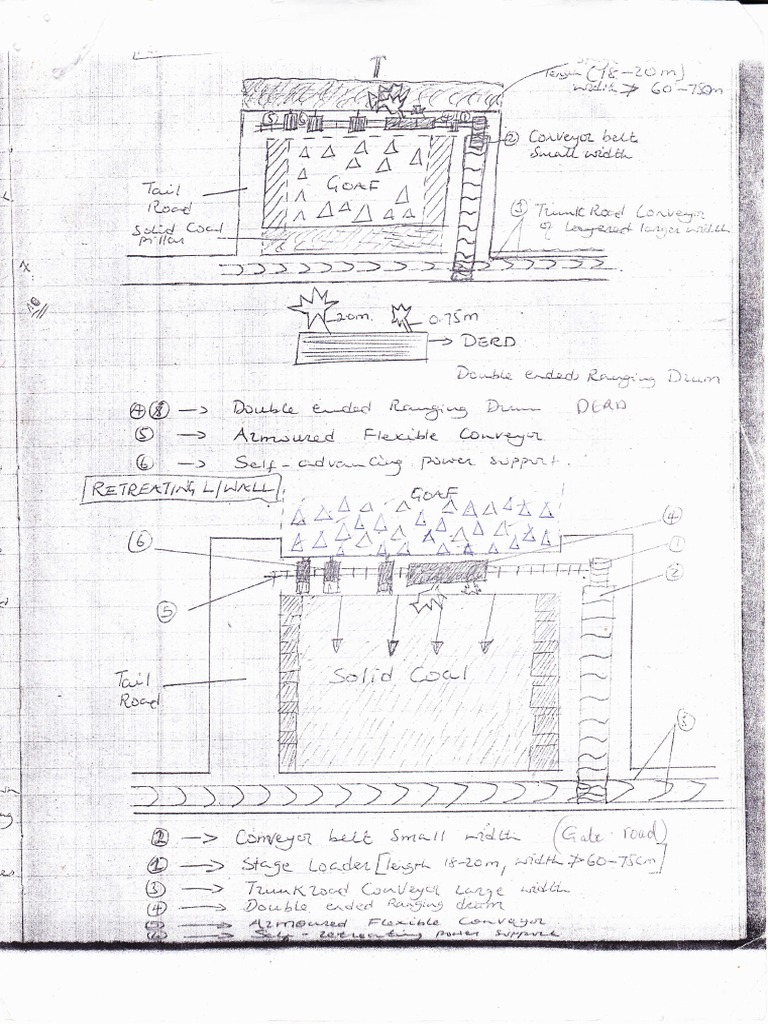 length (18-20m)
width ≯ 60-75cm
② Conveyor belt
Small width
⑤ ⑥ ④ ①
GOAF
Tail
Road
Solid Coal
pillar
③ Trunk Road Conveyor
of larger width
20m. 0.75m
→ DERD
Double ended Ranging Drum
④ → Double ended Ranging Drum DERD
⑤ → Armoured Flexible Conveyor
⑥ → Self-advancing power support.
RETREATING L/WALL
GOAF
⑥ ④
①
②
⑤
Solid Coal
Tail
Road
③
② → Conveyor belt Small width (Gate road)
① → Stage Loader [length 18-20m, width ≯ 60-75cm]
③ → Trunk road Conveyor Large width
④ → Double ended Ranging drum
⑤ → Armoured Flexible Conveyor
⑥ → Self-retreating power support